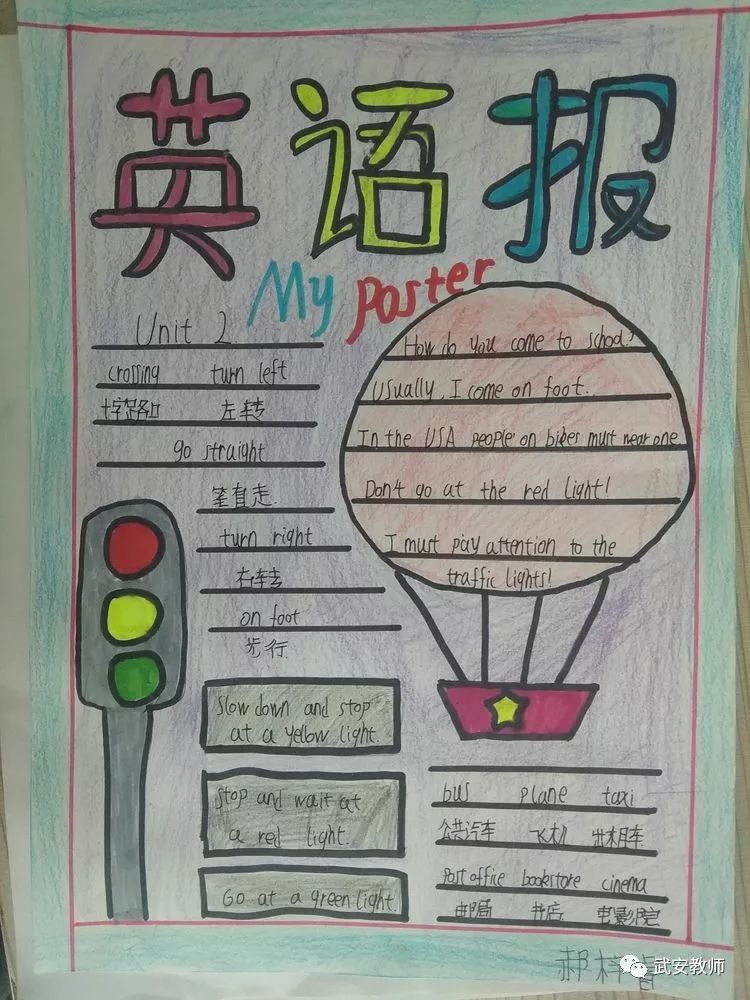 英语报
My poster
Unit 2
crossing turn left
十字路口 左转
go straight
笔直走
turn right
右转
on foot
步行
How do you come to school?
Usually, I come on foot.
In the USA people on bikes must near one
Don't go at the red light!
I must pay attention to the
traffic lights!
Slow down and stop
at a yellow light.
Stop and wait at
a red light.
Go at a green light
bus plane taxi
公共汽车 飞机 出租车
Post office bookstore cinema
邮局 书店 电影院
郝梓
武安教师